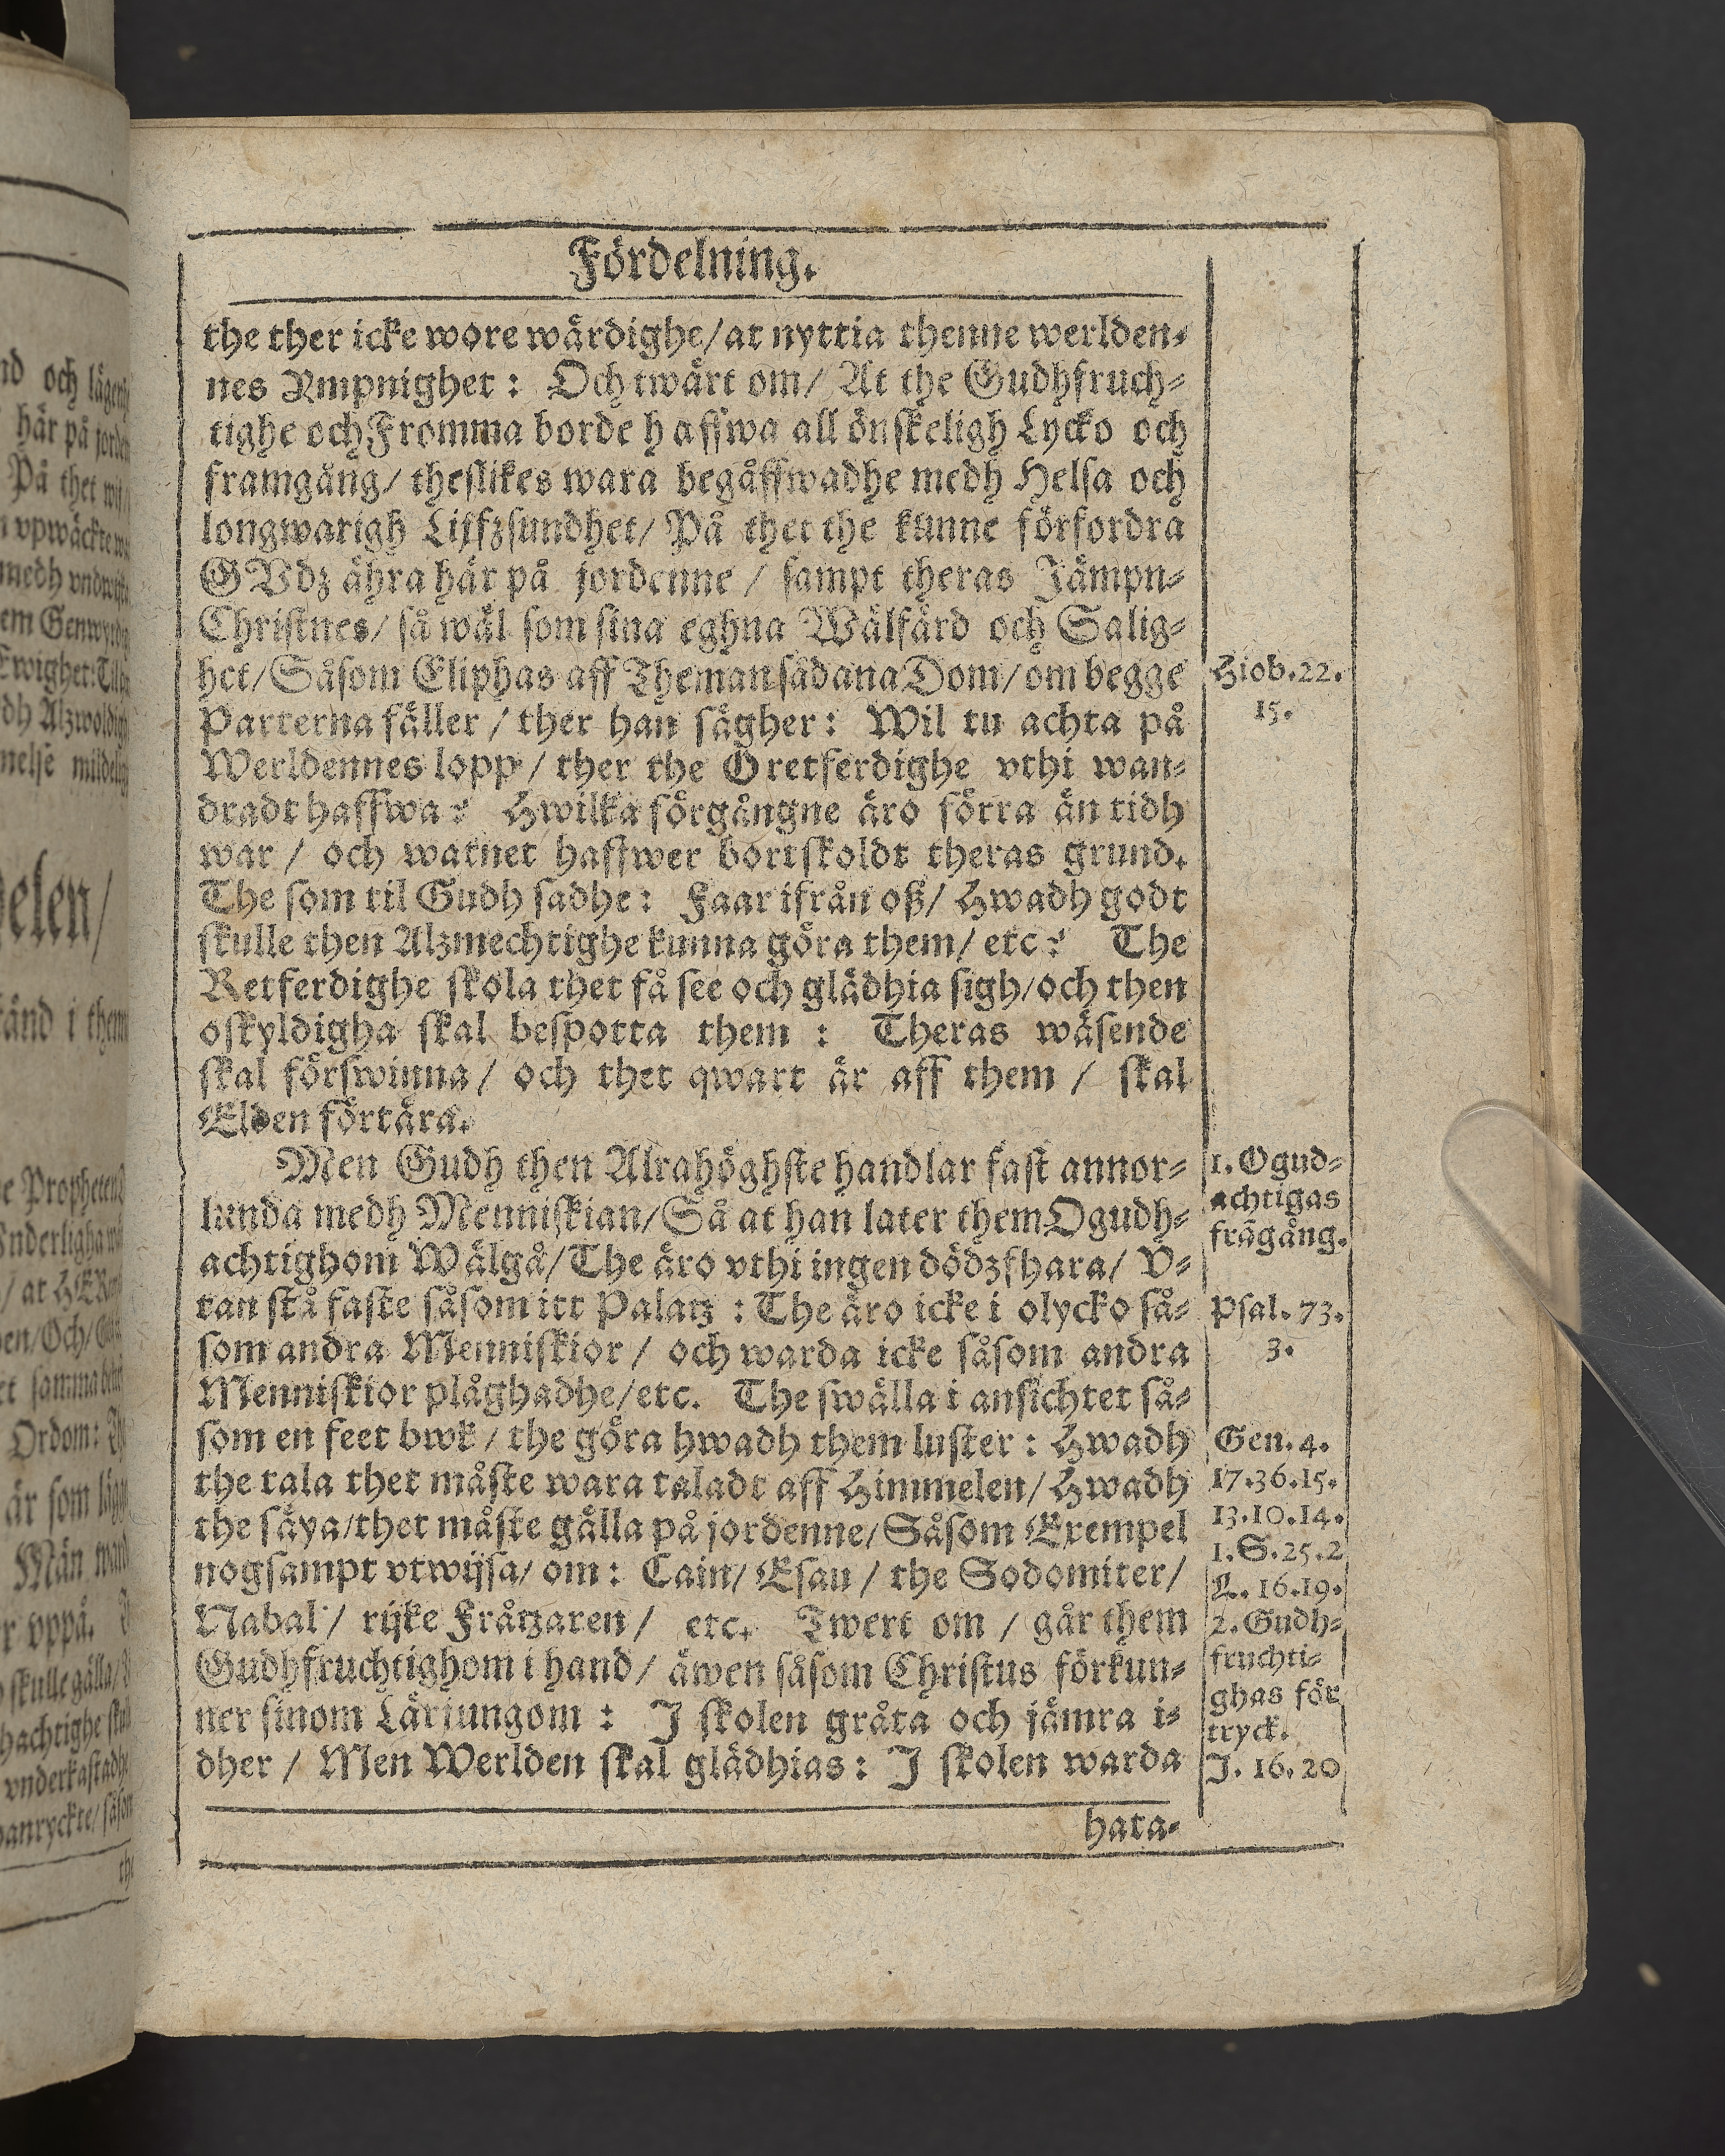 Fördelning.
the ther icke wore wärdighe/at nyttia thenne werlden-
nes Ympnighet: Och twärt om/ At the Gudhfruch-
tighe och Fromma borde haffwa all önskeligh Lycko och
framgång/ theslikes wara begåffwadhe medh Helsa och
longwarigh Lijffzsundhet/ På thet the kunne förfordra
GVdz ähra här på jordenne / sampt theras Jämpn-
Christnes/ så wäl som sina eghna Wälfärd och Salig-
het/Såsom Eliphas aff Theman sådana Dom/om begge
Parterna fäller / ther han sägher: Wil tu achta på
Werldennes lopp/ ther the Oretferdighe vthi wan-
dradt haffwa? Hwilka förgångne äro förra än tidh
war / och watnet haffwer bortskoldt theras grund.
The som til Gudh sadhe: Faar ifrån oß/ Hwadh godt
skulle then Alzmechtighe kunna göra them/ etc? The
Retferdighe skola thet få see och glädhia sigh/och then
oskyldigha skal bespotta them : Theras wäsende
skal förswinna/ och thet qwart är aff them / skal
Elden förtära.
Men Gudh then Alrahöghste handlar fast annor-
lunda medh Menniskian/Så at han later them Ogudh-
achtighom Wälgå/The äro vthi ingen dödzfhara/ V-
tan stå faste såsom itt Palatz : The äro icke i olycko så-
som andra Menniskior/ och warda icke såsom andra
Menniskior plåghadhe/etc. The swälla i ansichtet så-
som en feet bwk / the göra hwadh them luster : Hwadh
the tala thet måste wara taladt aff Himmelen/ Hwadh
the säya/thet måste gälla på jordenne/Såsom Exempel
nogsampt vtwijsa/ om: Cain/ Esau / the Sodomiter/
Nabal / rijke Fråtzaren/ etc. Twert om / går them
Gudhfruchtighom i hand/ äwen såsom Christus förkun-
ner sinom Lärjungom : J skolen gråta och jämra i-
dher / Men Werlden skal glädhias: J skolen warda
hata-
Hiob.22.
15.
1. Ogud-
achtigas
frågång.
Psal.73.
3.
Gen.4.
17.36.15.
13.10.14.
1.S.25.2
L.16.19.
2.Gudh-
fruchti-
ghas för
tryck.
J. 16.20